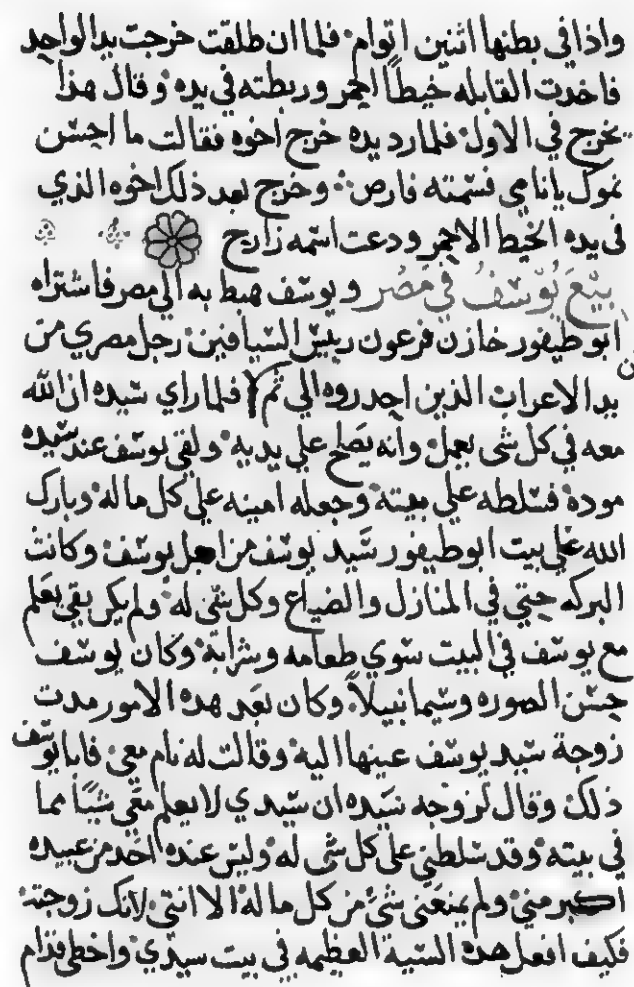 واذا في بطنها اثنين اتوام٠ فلما ان طلقت خرجت يد الواحد
فاخدت القابله خيطاً احمر وربطته في يده٠ وقال هذا
يخرج في الاول٠ فلما رد يده خرج اخوه فقالت ما احسن
نموك يا نامي فسمته فارص٠ وخرج بعد ذلك اخوه الذي
في يده الخيط الاحمر ودعت اسمه زارح
بيع يُوسفُ في مَصُر ويوسف هبط به الي مصر فاشتراه
ابوطيفور خازن فرعون رييس السيافين٠ رجل مصري من
يد الاعراب الذين احدروه الي ثم فلما راي سيده ان الله
معه في كل شي يعمل٠ وانه يَصلح علي يديه٠ ولقي يوسف عند سيده
مودة٠ فسلطه علي بيته٠ وجعله امينه علي كل ما له٠ وبارك
الله علي بيت ابوطيفور سيد يوسف من اجل يوسف٠ وكانت
البركه حتي في المنازل والضياع وكل شي له٠ ولم يكن بقي يعلم
مع يوسف في البيت سوي طعامه وشرابه٠ وكان يوسف
حسن الصوره وسيما نبيلاً٠ وكان بعد هده الامور مدت
زوجة سيد يوسف عينها اليه٠ وقالت له نام معي٠ فابا يوسف
ذلك٠ وقال لزوجه سيده ان سيدي لا يعلم معي شيًا مما
في بيته٠ وقد سلطني علي كل شي له٠ وليس عنده احد من عبيده
اكبر مني٠ ولم يمنعني شي من كل ما له الا انتي٠ لانك زوجته٠
فكيف افعل هده السية العظيمه في بيت سيدي٠ واخطي قدام